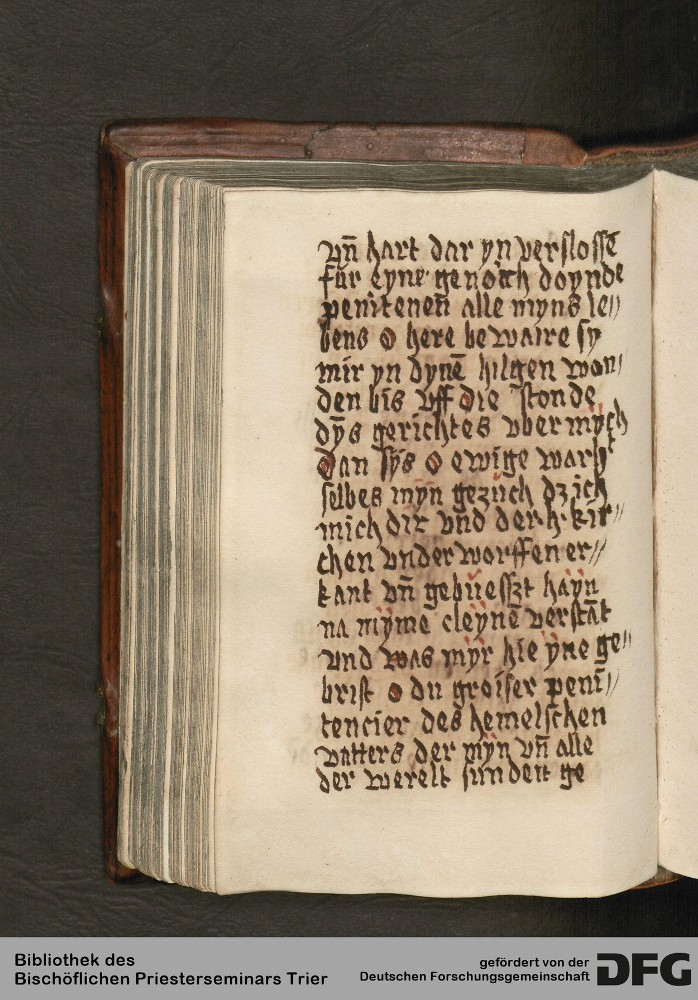 vn̄ hart dar yn verslossē
fůr eyne genoͤich doynde
penitenen̄ alle myns le//
bens o here bewaire sy
mir yn dynē hilgen won/
den bis vff die stonde
dÿs gerichtes vber mych
Dan sÿs o ewige warh'
selbes mÿn gezüch dz ich
mich dir vnd der h. kir//
chen vnder worffen er//
kant vn̄ gebüesszt haÿn
na mÿme cleÿnē verstāt
vnd was mÿr hie ÿne ge//
brist o du groiser penī//
tencier des hemelschen
vatters der mÿn vn̄ alle
der werelt sunden ge
Bibliothek des
Bischöflichen Priesterseminars Trier
gefördert von der
Deutschen Forschungsgemeinschaft
DFG